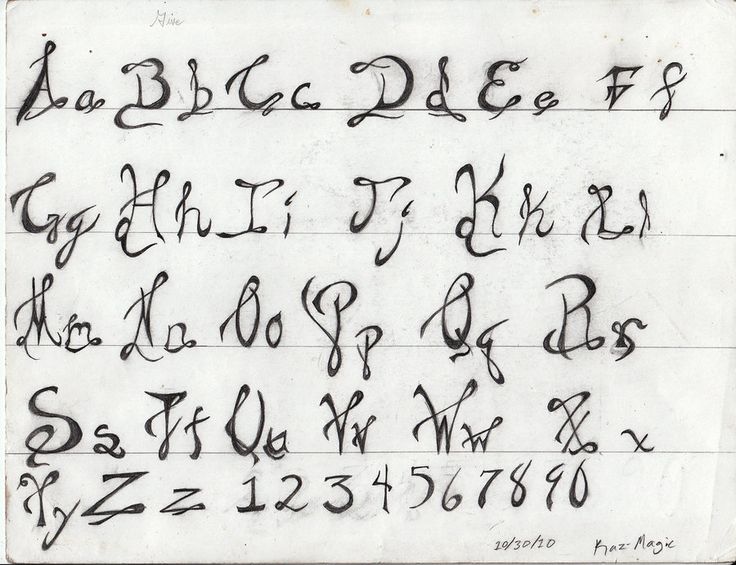 Give
A a B b C c D d E e F f
G g H h I i J j K k L l
M m N n O o P p Q q R r
S s T t U u V v W w X x
Y y Z z 1 2 3 4 5 6 7 8 9 0
10/30/10 Kaz-Magic